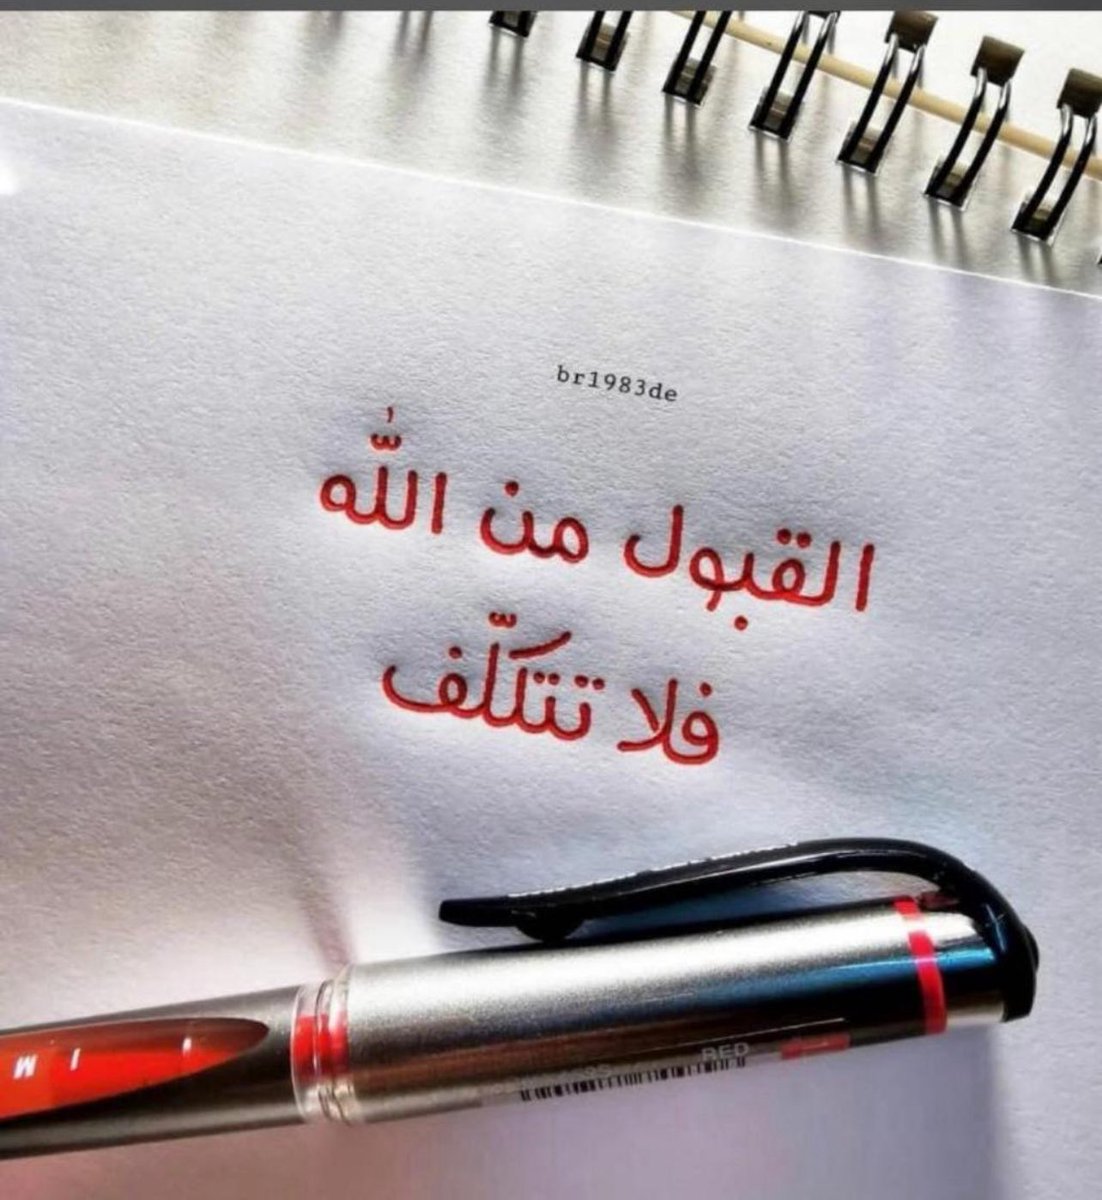 br1983de
القبول من اللّٰه
فلا تتكلّف
RED